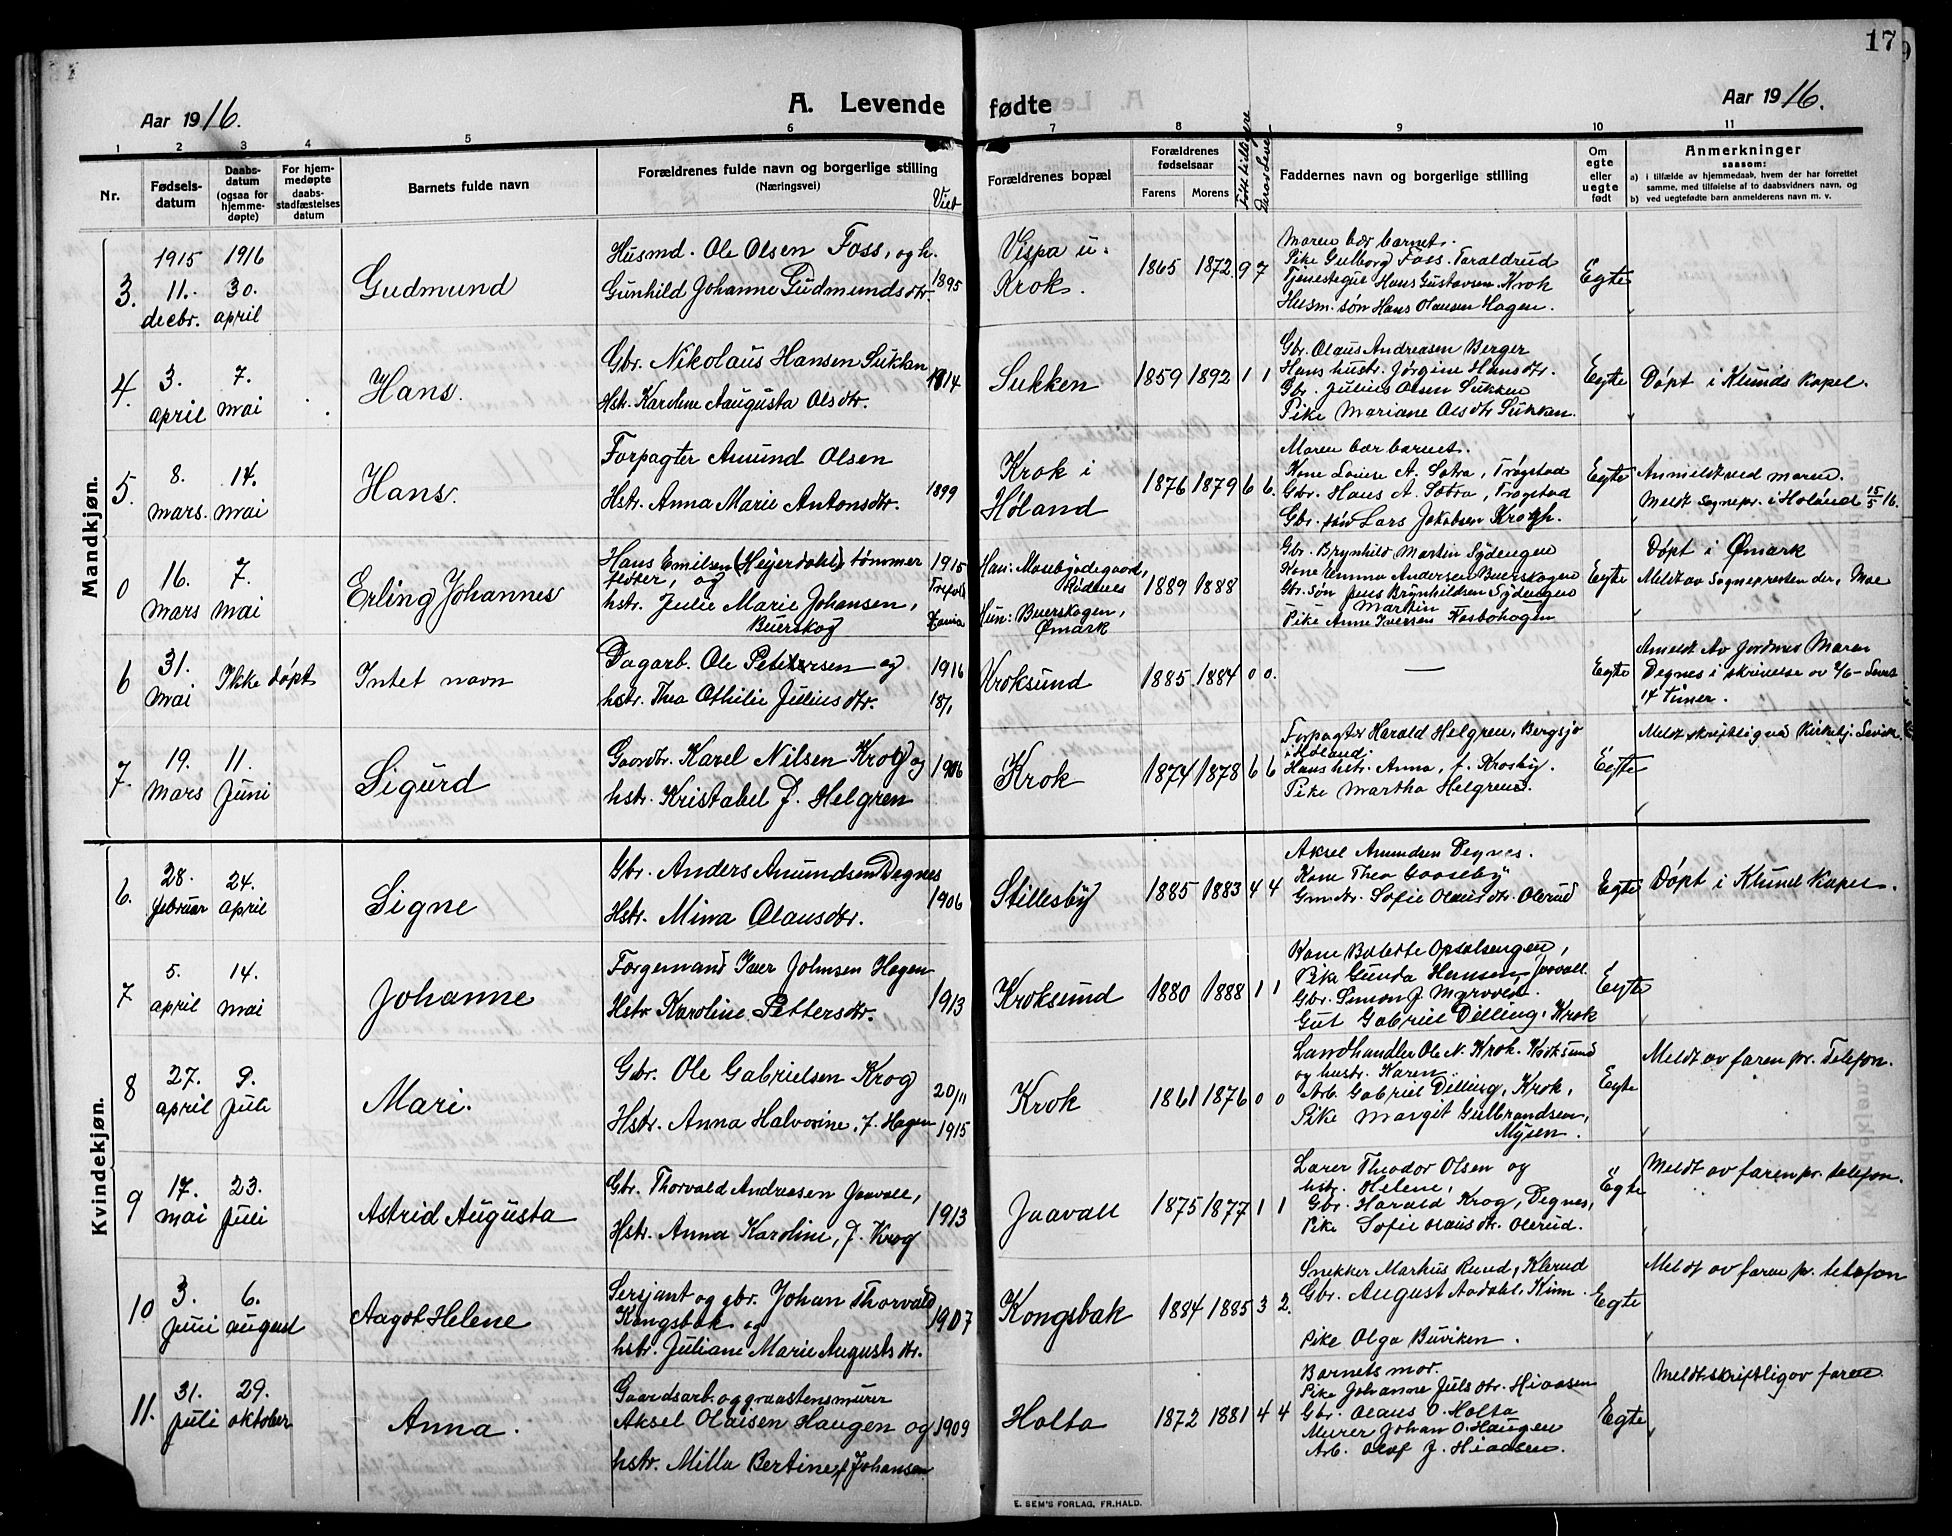 17
Aar 1916.
A. Levende fødte
Aar 1916.
1 2 3 4 5 6 7 8 9 10 11
Nr.
Fødsels-
datum
Daabs-
datum
(ogsaa for
hjemme-
døpte)
For hjem-
medøpte
daabs-
stadfæstelses
datum
Barnets fulde navn
Forældrenes fulde navn og borgerlige stilling
(Næringsvei)
Viet
Forældrenes bopæl
Forældrenes
fødselsaar
Farens Morens
Faddernes navn og borgerlige stilling
Om
egte
eller
uegte
født
Anmerkninger
saasom:
a) i tilfælde av hjemmedaab, hvem der har forrettet
samme, med tilføielse af to daabsvidners navn, og
b) ved uegtefødte barn anmelderens navn m. v.
Mandkjøn.
3.
1915
11.
decbr.
1916
30.
april
Gudmund
Husmd. Ole Olsen Foss, og h.
Gunhild Johanne Gudmundsdtr.
1895
Vispa u.
Krok.
1865 1872 9 7
Maren bær barnet.
Pike Gulborg Foss. Taraldrud
Tjenestegut Hans Gustavsen Krok
Husm. søn Hans Olausen Hagen.
Egte
4.
3.
april
7.
mai
Hans.
Gbr. Nikolaus Hansen Sukken
Hst. Karoline Aaugusta Olsdtr.
1914
Sukken
1859 1892 1 1
Gbr. Olaus Andreasen Berger
Hans hustr. Jørgine Hansdtr.
Gbr. Julius Olsen Sukken
Pike Mariane Olsdtr Sukken.
Egte
Døpt i Klunds Kapel.
5.
8.
mars.
14.
mai
Hans.
Forpagter Amund Olsen
Hstr. Anna Marie Antonsdtr.
1899
Krok i
Høland
1876 1879 6 6.
Maren bær barnet.
Kone Louise A. Sotra, Trøgstad
Gbr. Hans A. Sotra, Trøgstad
Gbr. søn Lars Jakobsen Krogh.
Egte
Anmeldt ved moren.
Meldt Sognepr. i Høland 15/5 16.
0
16.
mars
7.
mai
Erling Johannes
Hans Emilsen (Heyerdahl) tømmer
fløter, og
hstr. Julie Marie Johansen,
Buerskog
1915
Han: Mosebyødegaard,
Rødenes
Hun: Buerskogen,
Ømark
1889 1888
Gbr. Brynhild Martin Sydengen
Kone Emma Andersen Buerskogen
Gbr. Søn Jens Brynhildsen Sydengen
Martin
Pike Anne Iversen Fosbøhagen
Egte
Døpt i Ømark
Meldt av Sognepresten der, Moe
6
31.
mai
Ikke døpt
Intet navn
Dagarb. Ole Pettersen og
hstr. Thea Othilie Juliusdtr.
1916
18/1
Kroksund
1885. 1884 0 0.
—
Egte
Anmeldt Av Jordmor Maren
Degnes i skrivelse av 2/6 - Levet
14 timer.
7.
19.
Mars
11.
Juni
Sigurd
Gaardbr. Karel Nilsen Krog og
hstr. Kristabel J. Helgren
1906
Krok
1874 1878 6 6
Forpagter Harald Helgren, Bergsjø
i Høland
Hans hstr. Anna, f. Krosby.
Pike Martha Helgren.
Egte
Kvindekjøn.
6.
28.
februar
24.
april
Signe
Gbr. Anders Amundsen Degnes
Hstr. Mina Olausdtr.
1906
Stillesby
1885 1883 4 4
Aksel Amundsen Degnes.
Kone Thea
Gm.dtr. Sofie Olausdtr. Olerud
Egte
Døpt i Klund Kapel.
7
5.
april
14.
mai
Johanne
Forgemand Iver Johnsen Hagen
Hstr Karoline Pettersdtr.
1913
Kroksund
1880 1888 1 1
Kone Bolette Opsalsengen,
Pike Gunda Hansen Jaavall.
Gbr. Simon J. Myrvold.
Gut Gabriel Dilling, Krok
Egte
8
27.
april
9.
Juli
Mari.
Gbr. Ole Gabrielsen Krog
Hstr. Anna Halvorine, f. Hagen
20/11
1915
Krok
1861 1876 0 0
Landhandler Ole N. Krok. Kroksund
og hustr. Karen.
Arb. Gabriel Dilling, Krok,
Pike Margit Gulbrandsen,
Mysen.
Egte
Meldt av faren pr. Telefon.
9
17.
mai
23.
Juli
Astrid Augusta
Gbr. Thorvald Andreasen Jaavall,
Hstr. Anna Karoline, f. Krog
1913
Jaavall
1875 1877 1 1
Lærer Theodor Olsen og
hstr. Helene,
Gbr. Harald Krog, Degnes,
Pike Sofie Olausdtr. Olerud.
Egte
Meldt av faren pr. telefon.
10
3.
Juni
6.
august
Aagot Helene
Sersjant og gbr. Johan Thorvald
Kongsbak og
hstr. Juliane Marie Augustsdtr.
1907
Kongsbak
1884 1885 3 2.
Snekker Markus Rund, Klerud
Gbr. August Aadahl, Kinn.
Pike Olga Buviken.
Egte
Meldt av faren pr. telefon
11.
31.
juli
29.
oktober
Anna.
Gaardsarb. og graastensmurer
Aksel Olausen Haugen og
hstr. Milla Bertine f. Johansen
1909
Holta
1872 1881 4 4
Barnets mor.
Pike Johanne Julsdtr. Hiaasen
Gbr. Olaus O. Holta
Murer Johan O. Haugen
Arb. Olaf J. Hiaasen.
Egte
Meldt skriftlig av faren
E. SEM'S FORLAG, FR.HALD.